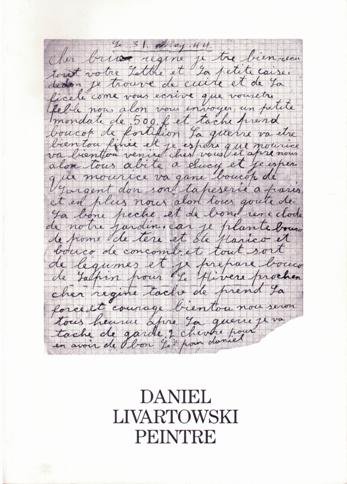 Le 31
Cher regine je tre bien
tout votre Letthe et La petite caise.
je trouve de cuire et de La
ficele come vous ecrive que
feble nous alon vous envoyer un petite
mondate de 500 f et tache prend
boucop de fortifion La guerre va etre
bientou finie et je espere que mourice
va bientou venire chez vous et apre nous
alon tous abite a et je esper
que mourice va gane boucop de
L'argent don son tapeserie a paris
et en plus nous alon tous goute de
La bone peche et de bond
de notre jardin. car je plante bouc
de pome de tere et de Harico et
bouco de concombr, et tout sort
de legume et je prepare bouco
de Lapin pour Le Hivere prochen
cher regine tache de prend La
force et courage bientou nou seron
tous heureu apre La guerre je va
tache de garde 2 chevre pour
en avoir de bon daniel
DANIEL
LIVARTOWSKI
PEINTRE